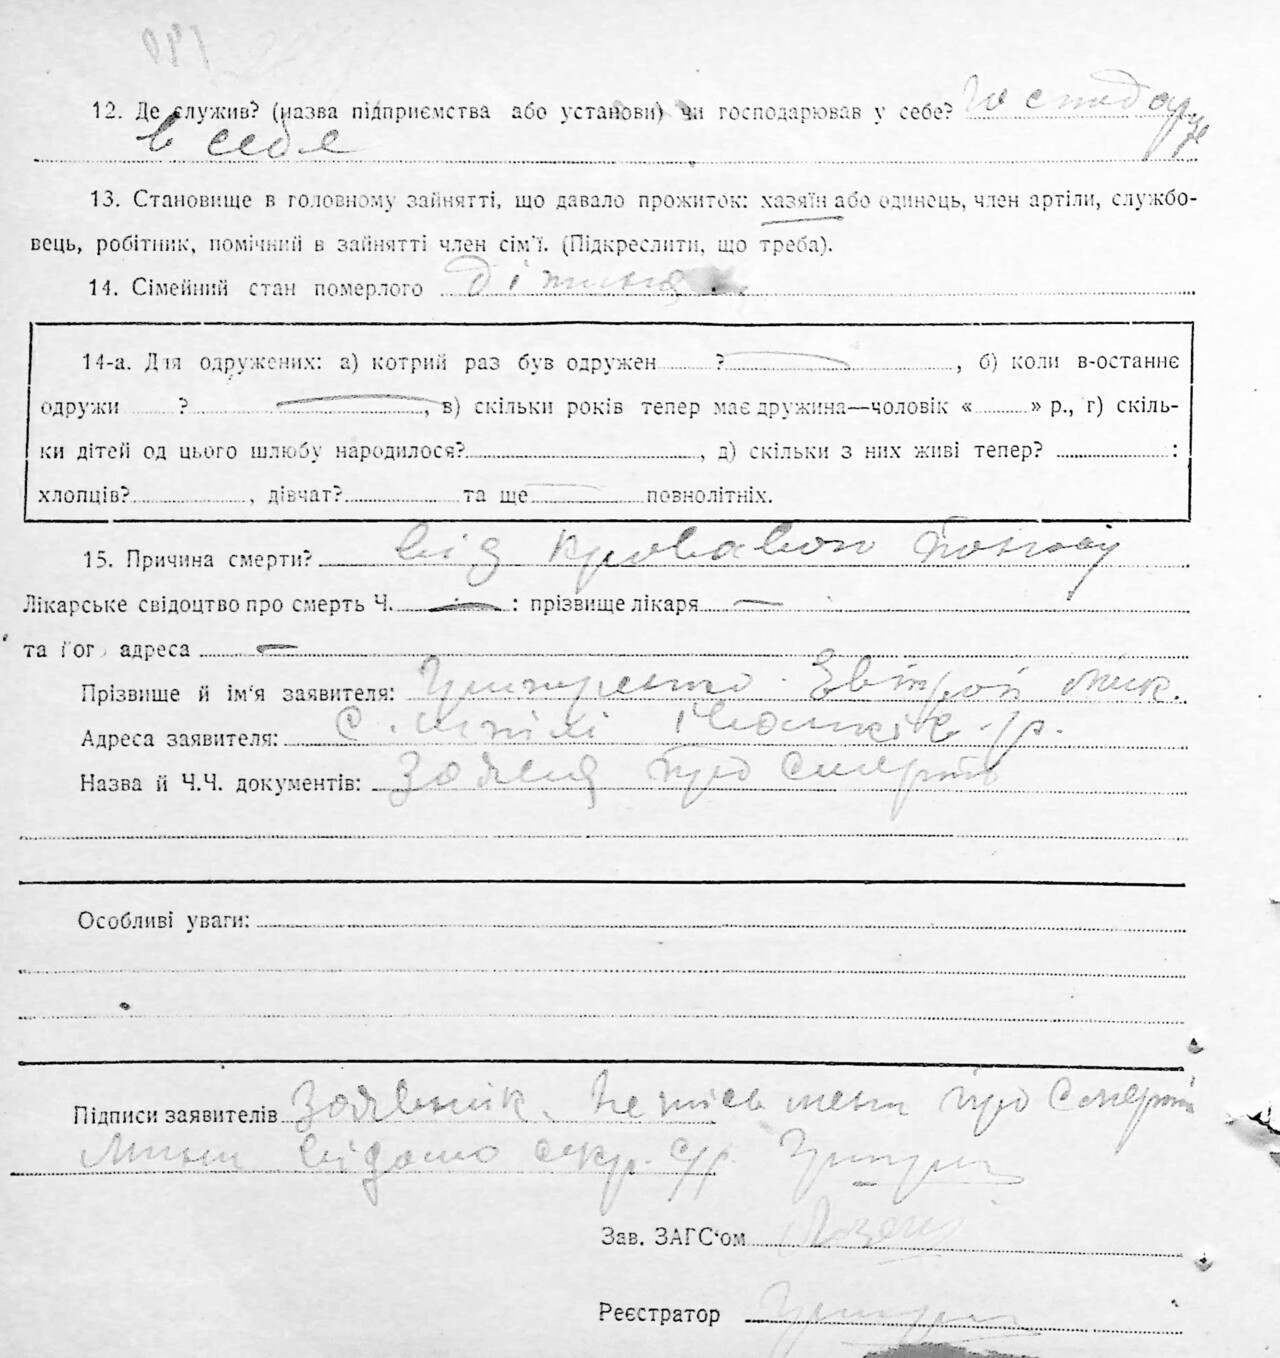 12. Де служив? (назва підприємства або установи) чи господарював у себе? господарує
в себе
13. Становище в головному зайнятті, що давало прожиток: хазяїн або одинець, член артіли, службо-
вець, робітник, помічний в зайнятті член сім'ї. (Підкреслити, що треба).
14. Сімейний стан померлого дитина
14-а. Для одружених: а) котрий раз був одружен ? , б) коли в-останнє
одружи ? , в) скільки років тепер має дружина—чоловік « » р., г) скіль-
ки дітей од цього шлюбу народилося? , д) скільки з них живі тепер? :
хлопців? , дівчат? та ще повнолітніх.
15. Причина смерти? від кровавого поносу
Лікарське свідоцтво про смерть Ч. — : прізвище лікаря —
та його адреса —
Прізвище й ім'я заявителя: мик.
Адреса заявителя: с. р.
Назва й Ч.Ч. документів: Заява про смерть
Особливі уваги:
Підписи заявителів Заявник про смерть
відомо секр. с/р.
Зав. ЗАГС'ом
Реєстратор